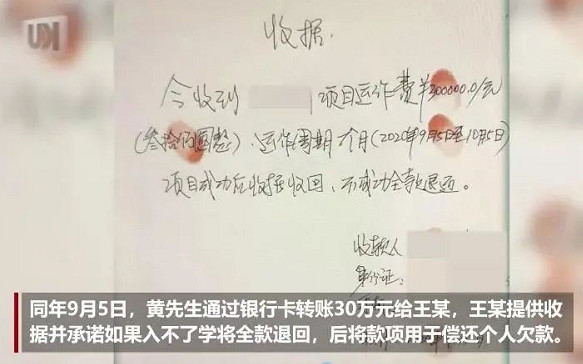 收据
今收到 项目运作费¥300000.0/元
(叁拾伍圆整)、运作周期一个月(2020年9月5日至10月5日)
项目成功后收据收回、不成功全款退还。
收款人
身份证:
同年9月5日，黄先生通过银行卡转账30万元给王某，王某提供收
据并承诺如果入不了学将全款退回，后将款项用于偿还个人欠款。